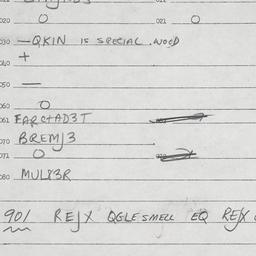 020 O 021 O
030 —QKIN IS SPECIAL .WOOD
+
040
050 —
060 O
061 FARCTAD3T
070 BREMJ3
071 O
080 MULX3R
901 REJX QGLESMELL EQ REJX